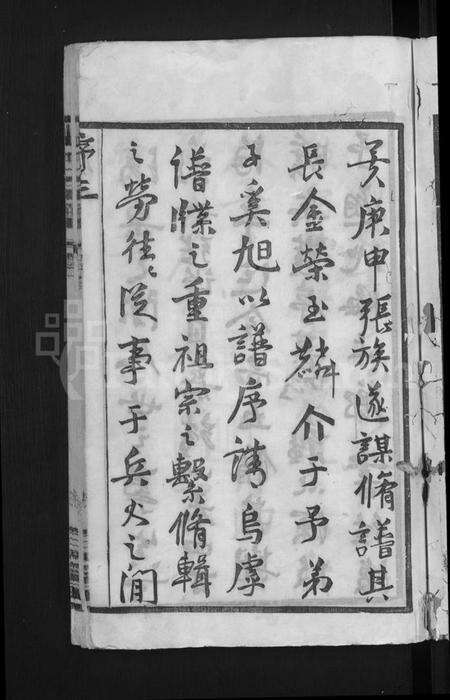 矣庚申張族遂謀脩譜其
長金榮玉麟介于予弟
子奚旭以譜序請烏虖
譜牒之重祖宗之繫脩輯
之勞往往從事于兵火之閒
序三